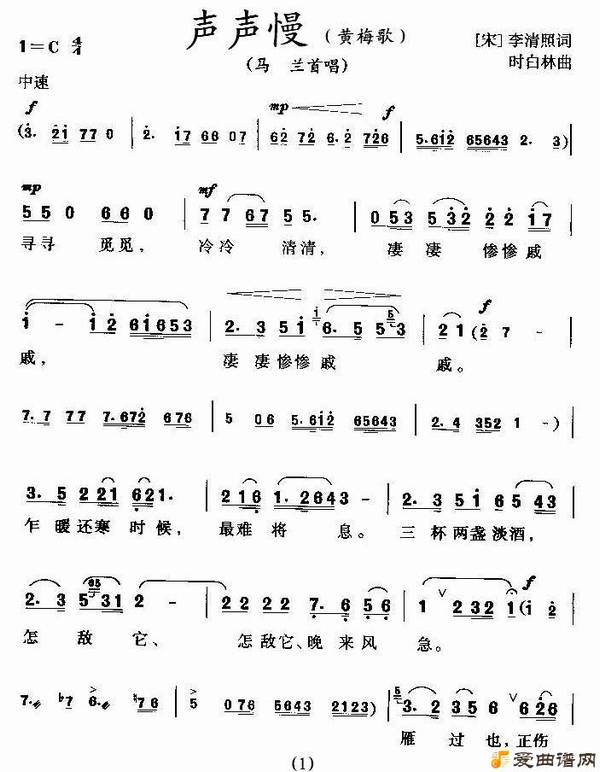 声声慢（黄梅歌）
1=C 4/4
（马 兰首唱）
[宋] 李清照词
时白林曲
中速
f mp f
(3. 21 77 0 | 2. 17 66 07 | 62 72 6.2 726 | 5.612 65643 2. 3) |
mp mf
5 5 0 6 6 0 | 7 7 67 5 5. | 0 53 532 2 2 17 |
寻寻 觅觅， 冷冷 清清， 凄 凄 惨惨戚
f
1 - 12 61653 | 2. 3 51 6. 5 553 | 2 1 (2 7 - |
戚， 凄 凄惨惨戚 戚。
7. 7 77 7.672 676 | 5 06 5.612 65643 | 2. 4 352 1 -) |
3. 5 2 21 621. | 216 1.2643 - | 2. 3 51 65 43 |
乍 暖还寒 时 候， 最难 将 息。 三 杯两盏 淡酒，
f
2. 3 5 31 2 - | 2 2 2 2 7. 6 5 6 | 1 232 1 (i 2 |
怎 敌 它、 怎敌它、晚 来风 急。
7. b7 6. 76 | 5 076 5643 2123) | 3. 2 356 626 |
雁 过 也，正伤
(1)
爱曲谱网